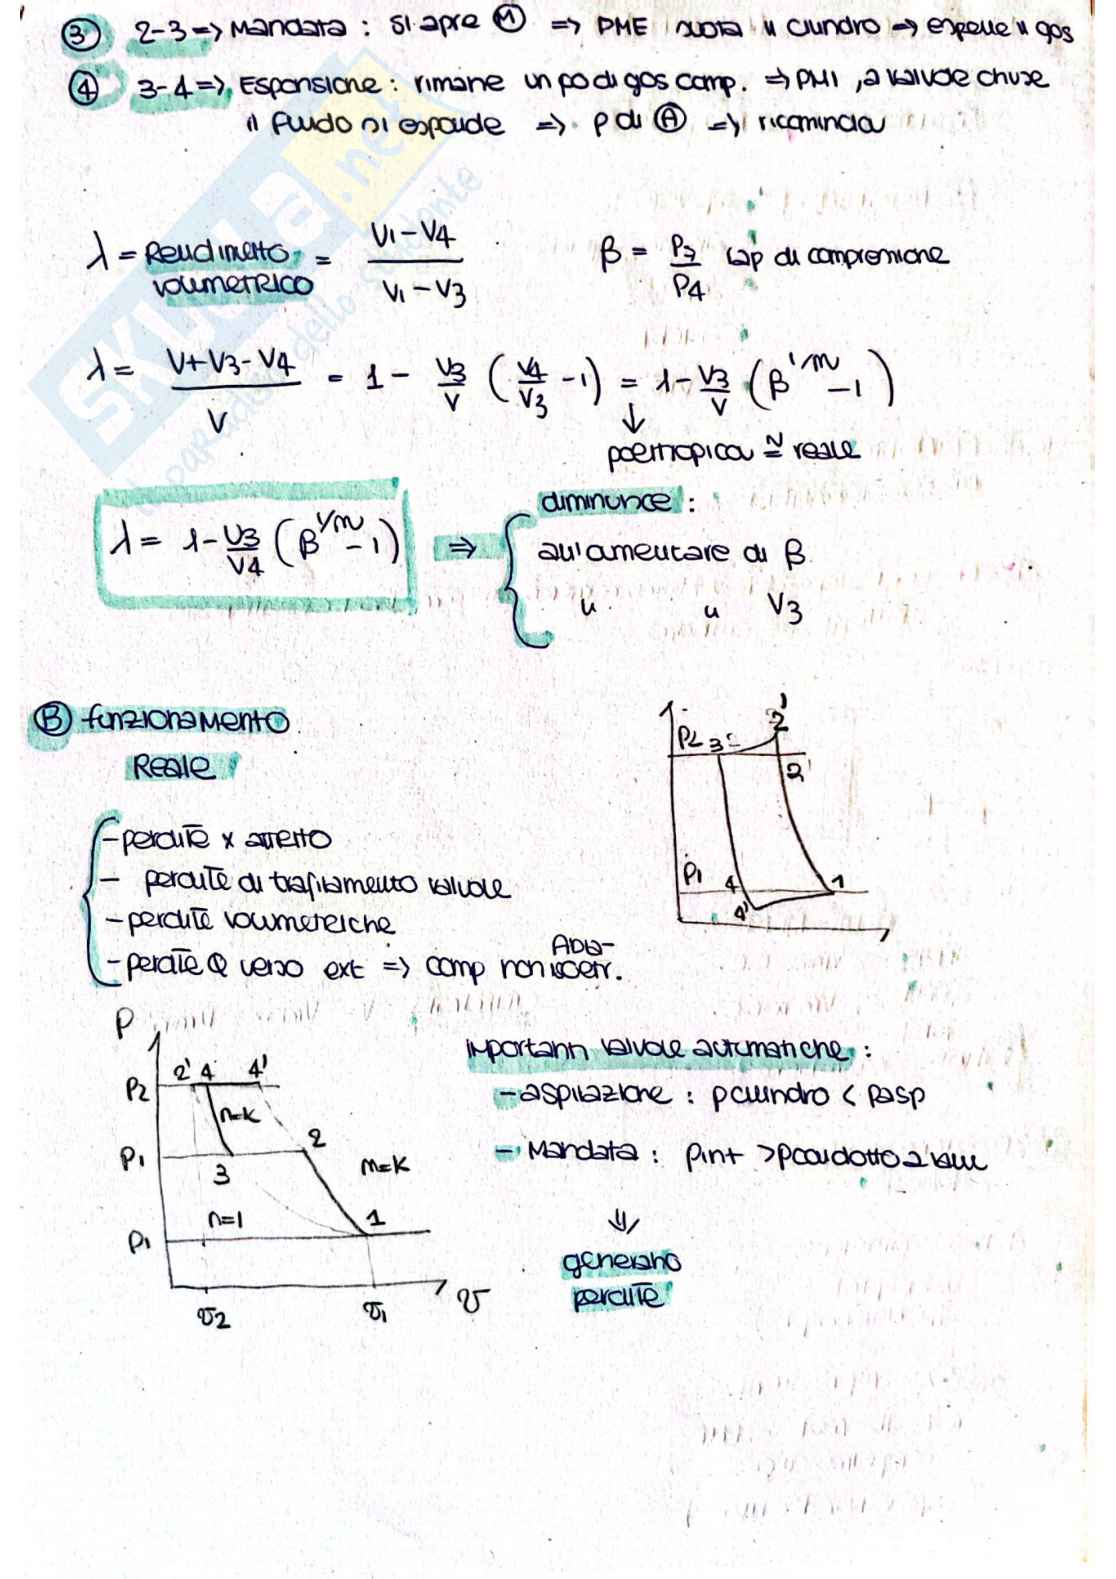 ③ 2-3 => Mandata : si apre Ⓜ => PME svota il cilindro => espelle il gas
④ 3-4 => Espansione : rimane un po di gas comp. => PMI , a valvole chiuse
il fluido si espande => p di Ⓐ => ricomincia
λ = Rendimento volumetrico = V1-V4 / V1-V3
β = P3 / P4 rap di compressione
λ = V+V3-V4 / V = 1 - V3/V ( V4/V3 - 1 ) = 1 - V3/V ( β^1/m - 1 )
↓
politropica ≅ reale
λ = 1 - V3/V4 ( β^1/m - 1 ) =>
diminuisce :
all'aumentare di β
" " V3
Ⓑ funzionamento
Reale
P2 3 2'
2'
P1 4 1
4'
- perdite x attrito
- perdite di trafilamento valvole
- perdite volumetriche
- perdite Q verso ext => comp non adia-
P
P2 2' 4 4'
n=k
P1 3 2
m=k
n=1 1
P1
v2 v1 v
importanti valvole automatiche :
- aspirazione : pcilindro < pasp
- Mandata : pint > pcondotto a valle
⇓
generano
perdite
SKUOLA.net
il paradiso dello studente